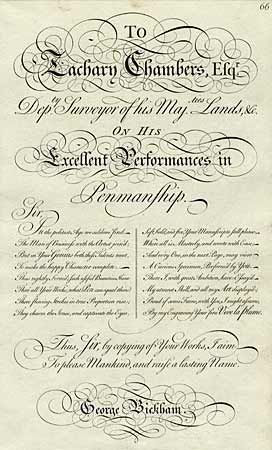 66
To
Zachary Chambers, Esqr.
Depty. Surveyor of his Majties. Lands, &c.
On His
Excellent Performances in
Penmanship.
Sir,
In the politest Age we seldom find
The Man of Business with the Artist join'd
But in Your Genius both these Talents meet,
To make the happy Character compleat:
Thus rightly
Thro' all Your Works; what Pen can equal
flowing strokes in true Proportion rise;
They charm the Sense, and captivate the Eyes
Soft, bold, and free, Your Manuscripts still please
Where all is Masterly, and wrote with Ease;
And every One, as the next Page, may view
A Curious Specimen, Perform'd by You.
I, with great Ambition, have
My utmost Skill, and all my Art display'd;
Proud of some Fame, with You,
By my Engraving Your fair Vive la Plume.
Thus, Sir, by copying of Your Works, I aim
To please Mankind, and raise a lasting Name.
George Bickham.